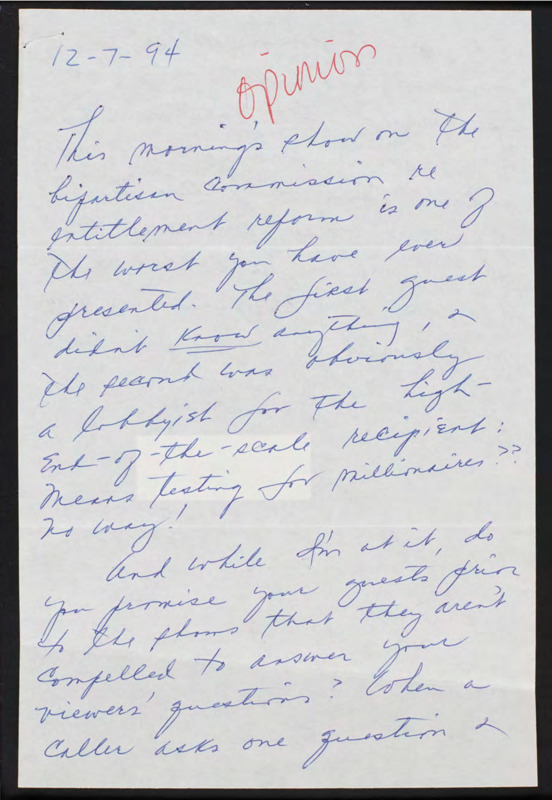 12-7-94
opinion
This morning's show on the
bipartisan commission re
entitlement reform is one of
the worst you have ever
presented. The first guest
didn't know anything, &
the second was obviously
a lobbyist for the high-
end-of-the-scale recipient:
Means testing for millionaires??
No way!
And while I'm at it, do
you promise your guests prior
to the shows that they aren't
compelled to answer your
viewers' questions? When a
caller asks one question &